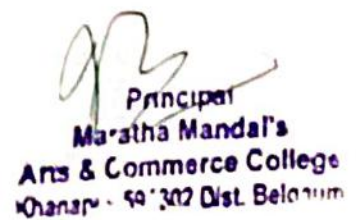 Principal
Maratha Mandal's
Arts & Commerce College
Khanapur - 591302 Dist. Belgaum